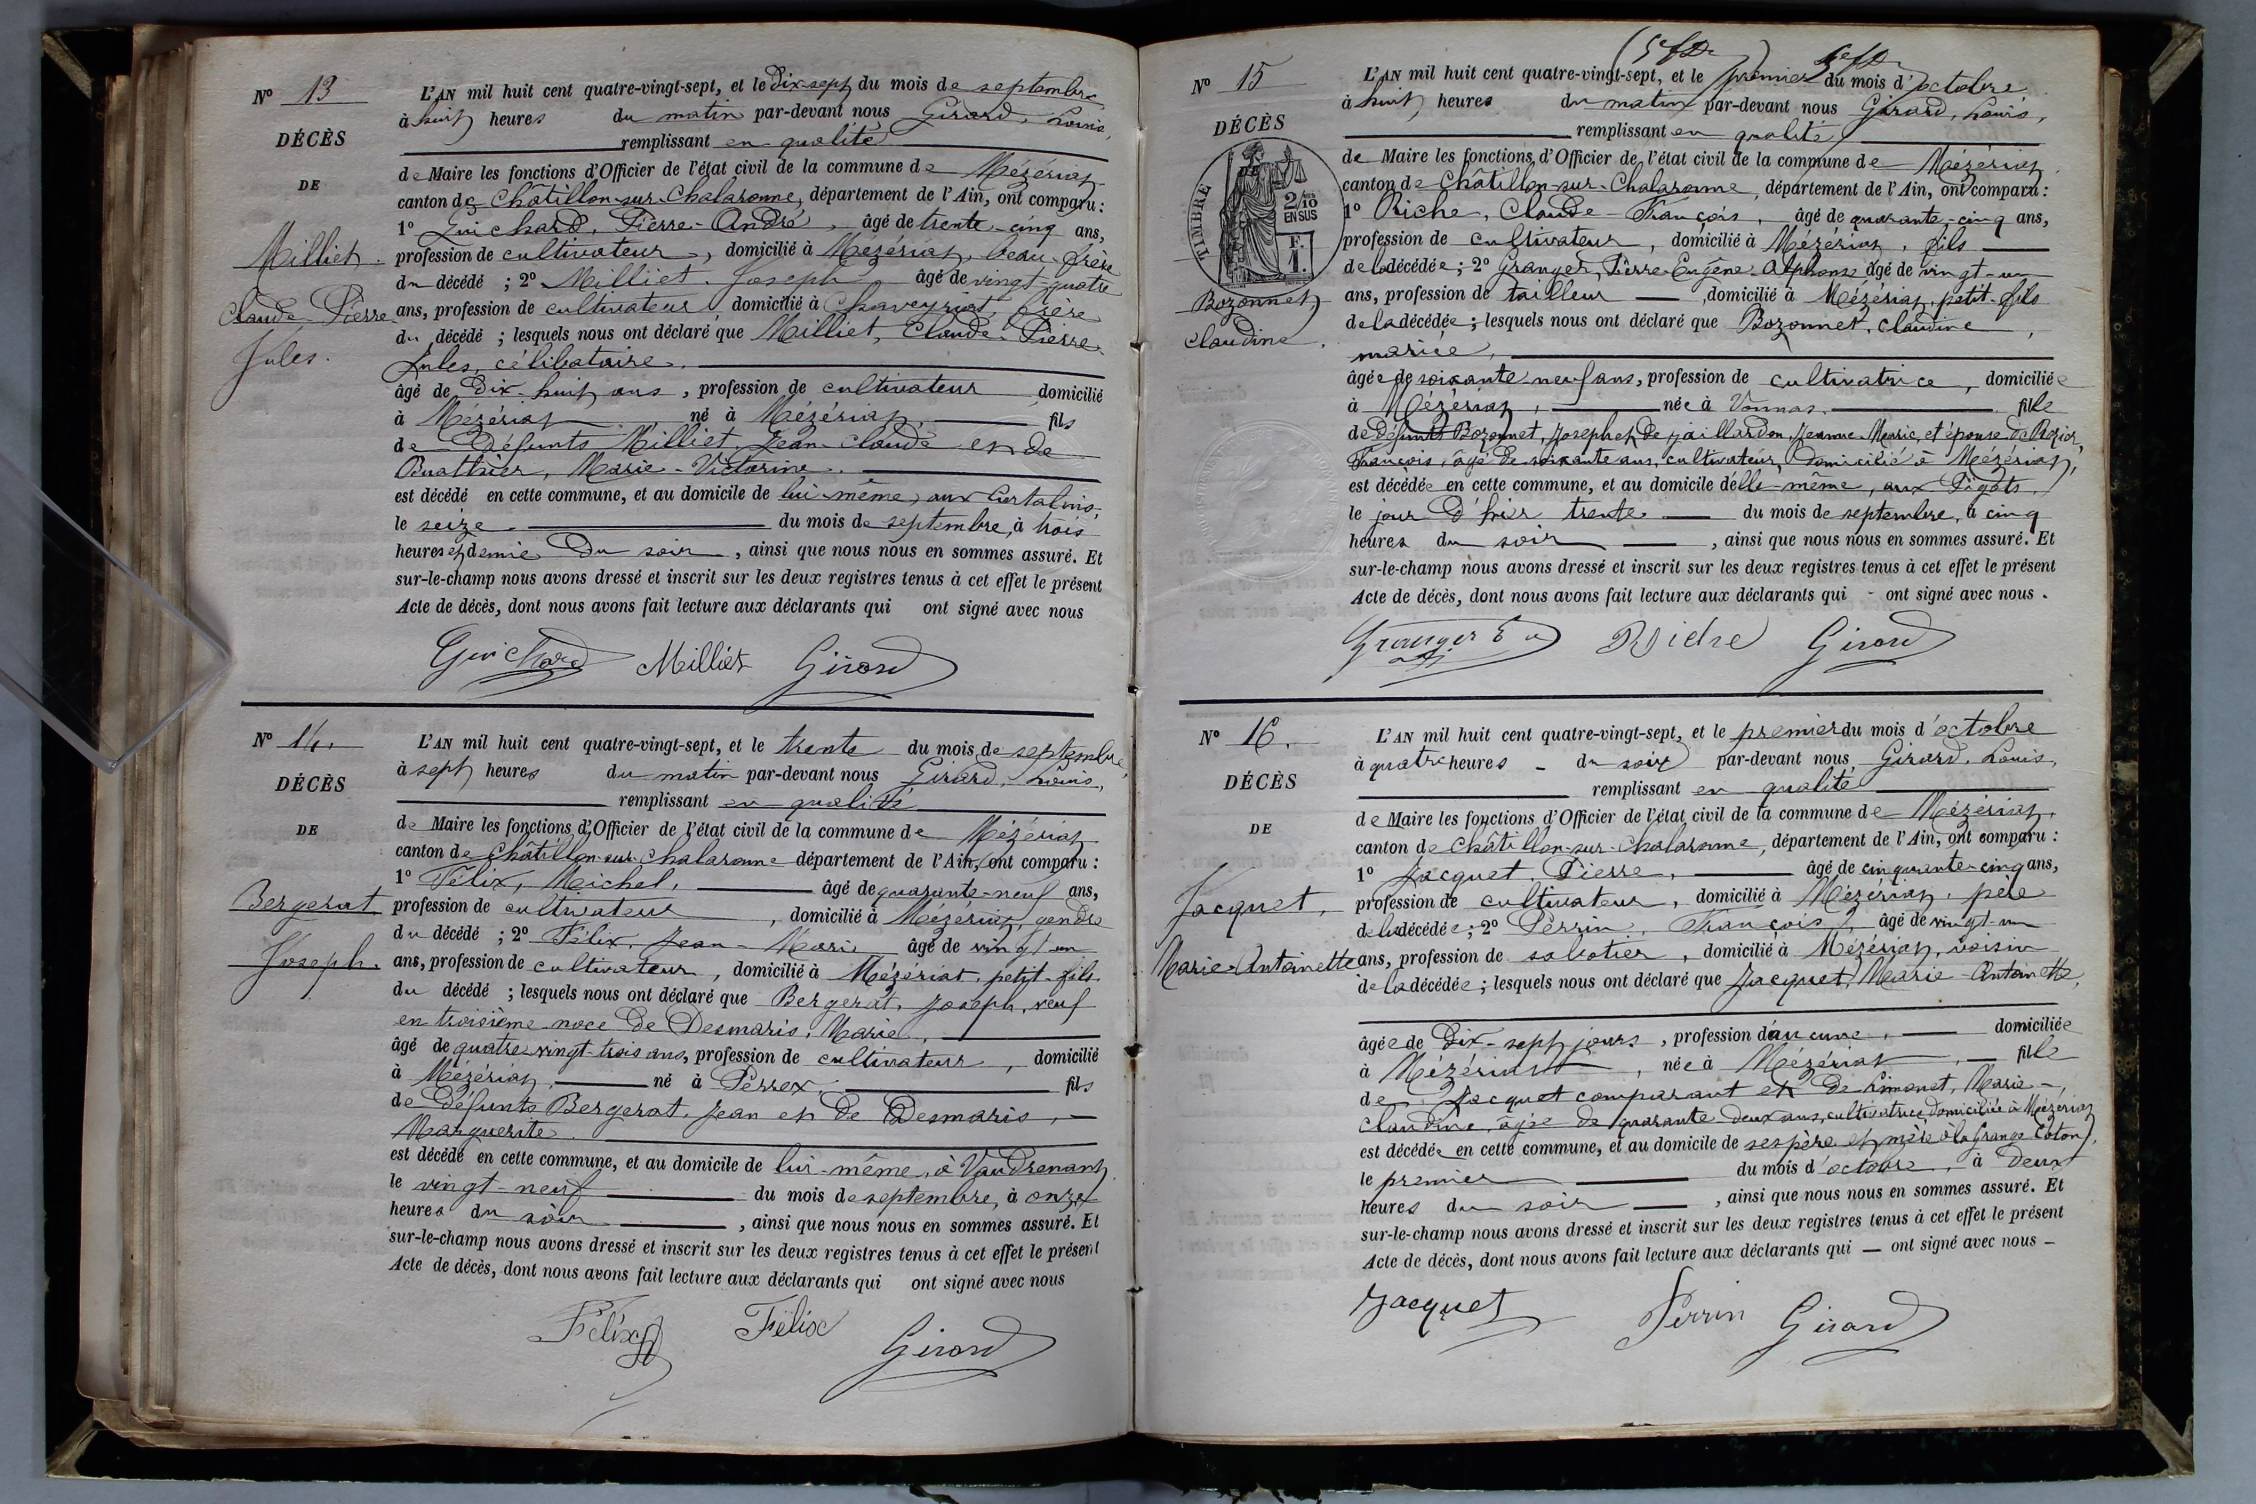 N° 13
DÉCÈS
DE
Milliet
Claude Pierre
Jules.
L'AN mil huit cent quatre-vingt-sept, et le Dix sept du mois de septembre
à huit heures du matin par-devant nous Girard, Louis,
remplissant en qualité
de Maire les fonctions d'Officier de l'état civil de la commune de Mézériat
canton de Châtillon-sur-Chalaronne, département de l'Ain, ont comparu :
1° Guichard, Pierre-André, âgé de trente-cinq ans,
profession de cultivateur, domicilié à Mézériat, beau-frère
du décédé ; 2° Milliet Joseph âgé de vingt-quatre
ans, profession de cultivateur domicilié à Chaveyriat, frère
du décédé ; lesquels nous ont déclaré que Milliet, Claude-Pierre-
Jules, célibataire,
âgé de Dix-huit ans, profession de cultivateur domicilié
à Mézériat né à Mézériat fils
de Défunts Milliet, Jean-Claude et de
Buathier, Marie-Victorine.
est décédé en cette commune, et au domicile de lui-même, aux
le seize du mois de septembre, à trois
heures et demie du soir, ainsi que nous nous en sommes assuré. Et
sur-le-champ nous avons dressé et inscrit sur les deux registres tenus à cet effet le présent
Acte de décès, dont nous avons fait lecture aux déclarants qui ont signé avec nous
Guichard Milliet Girard
N° 14.
DÉCÈS
DE
Bergerat
Joseph.
L'AN mil huit cent quatre-vingt-sept, et le trente du mois de septembre,
à sept heures du matin par-devant nous Girard, Louis,
remplissant en qualité
de Maire les fonctions d'Officier de l'état civil de la commune de Mézériat
canton de Châtillon-sur-Chalaronne département de l'Ain, ont comparu :
1° Félix, Michel, âgé de quarante-neuf ans,
profession de cultivateur, domicilié à Mézériat, gendre
du décédé ; 2° Félix, Jean-Marie âgé de vingt un
ans, profession de cultivateur, domicilié à Mézériat, petit-fils
du décédé ; lesquels nous ont déclaré que Bergerat, Joseph, veuf
en troisième noce de Desmaris, Marie,
âgé de quatre vingt-trois ans, profession de cultivateur, domicilié
à Mézériat, né à Perrex, fils
de Défunts Bergerat, Jean et de Desmaris,
Marguerite.
est décédé en cette commune, et au domicile de lui-même, à Vaudrenant,
le vingt-neuf du mois de septembre, à onze
heures du soir, ainsi que nous nous en sommes assuré. Et
sur-le-champ nous avons dressé et inscrit sur les deux registres tenus à cet effet le présent
Acte de décès, dont nous avons fait lecture aux déclarants qui ont signé avec nous
Félix Félix Girard
N° 15
DÉCÈS
TIMBRE
2/10
EN SUS
F.
1.
Bozonnet,
Claudine.
L'AN mil huit cent quatre-vingt-sept, et le premier du mois d'octobre
à huit heures du matin par-devant nous Girard, Louis,
remplissant en qualité
de Maire les fonctions d'Officier de l'état civil de la commune de Mézériat
canton de Châtillon-sur-Chalaronne, département de l'Ain, ont comparu :
1° Riche, Claude-François, âgé de quarante-cinq ans,
profession de cultivateur, domicilié à Mézériat, fils
de la décédée ; 2° Granger, Pierre-Eugène-Alphonse âgé de vingt-un
ans, profession de tailleur, domicilié à Mézériat, petit-fils
de la décédée ; lesquels nous ont déclaré que Bozonnet, Claudine,
mariée,
âgée de soixante neuf ans, profession de cultivatrice, domiciliée
à Mézériat, née à Vonnas, fille
de Défunts Bozonnet, Joseph et de Jaillardon, Jeanne-Marie, et épouse de
François, âgé de soixante ans, cultivateur, domicilié à Mézériat,
est décédée en cette commune, et au domicile d'elle-même, aux Pigots,
le jour d'hier trente du mois de septembre, à cinq
heures du soir, ainsi que nous nous en sommes assuré. Et
sur-le-champ nous avons dressé et inscrit sur les deux registres tenus à cet effet le présent
Acte de décès, dont nous avons fait lecture aux déclarants qui - ont signé avec nous.
Granger Riche Girard
N° 16.
DÉCÈS
DE
Jacquet,
Marie-Antoinette
L'AN mil huit cent quatre-vingt-sept, et le premier du mois d'octobre
à quatre heures - du soir par-devant nous Girard, Louis,
remplissant en qualité
de Maire les fonctions d'Officier de l'état civil de la commune de Mézériat,
canton de Châtillon-sur-Chalaronne, département de l'Ain, ont comparu :
1° Jacquet, Pierre, âgé de cinquante-cinq ans,
profession de cultivateur, domicilié à Mézériat, père
de la décédée ; 2° Perrin, François, âgé de vingt-un
ans, profession de sabotier, domicilié à Mézériat, voisin
de la décédée ; lesquels nous ont déclaré que Jacquet, Marie-Antoinette,
âgée de Dix-sept jours, profession d'aucune, domiciliée
à Mézériat, née à Mézériat, fille
de Jacquet comparant et de Limonet, Marie-
Claudine, âgée de quarante-deux ans, cultivatrice domiciliée à Mézériat
est décédée en cette commune, et au domicile de ses père et mère à la Grange Coton,
le premier du mois d'octobre, à Deux
heures du soir, ainsi que nous nous en sommes assuré. Et
sur-le-champ nous avons dressé et inscrit sur les deux registres tenus à cet effet le présent
Acte de décès, dont nous avons fait lecture aux déclarants qui — ont signé avec nous -
Jacquet Perrin Girard